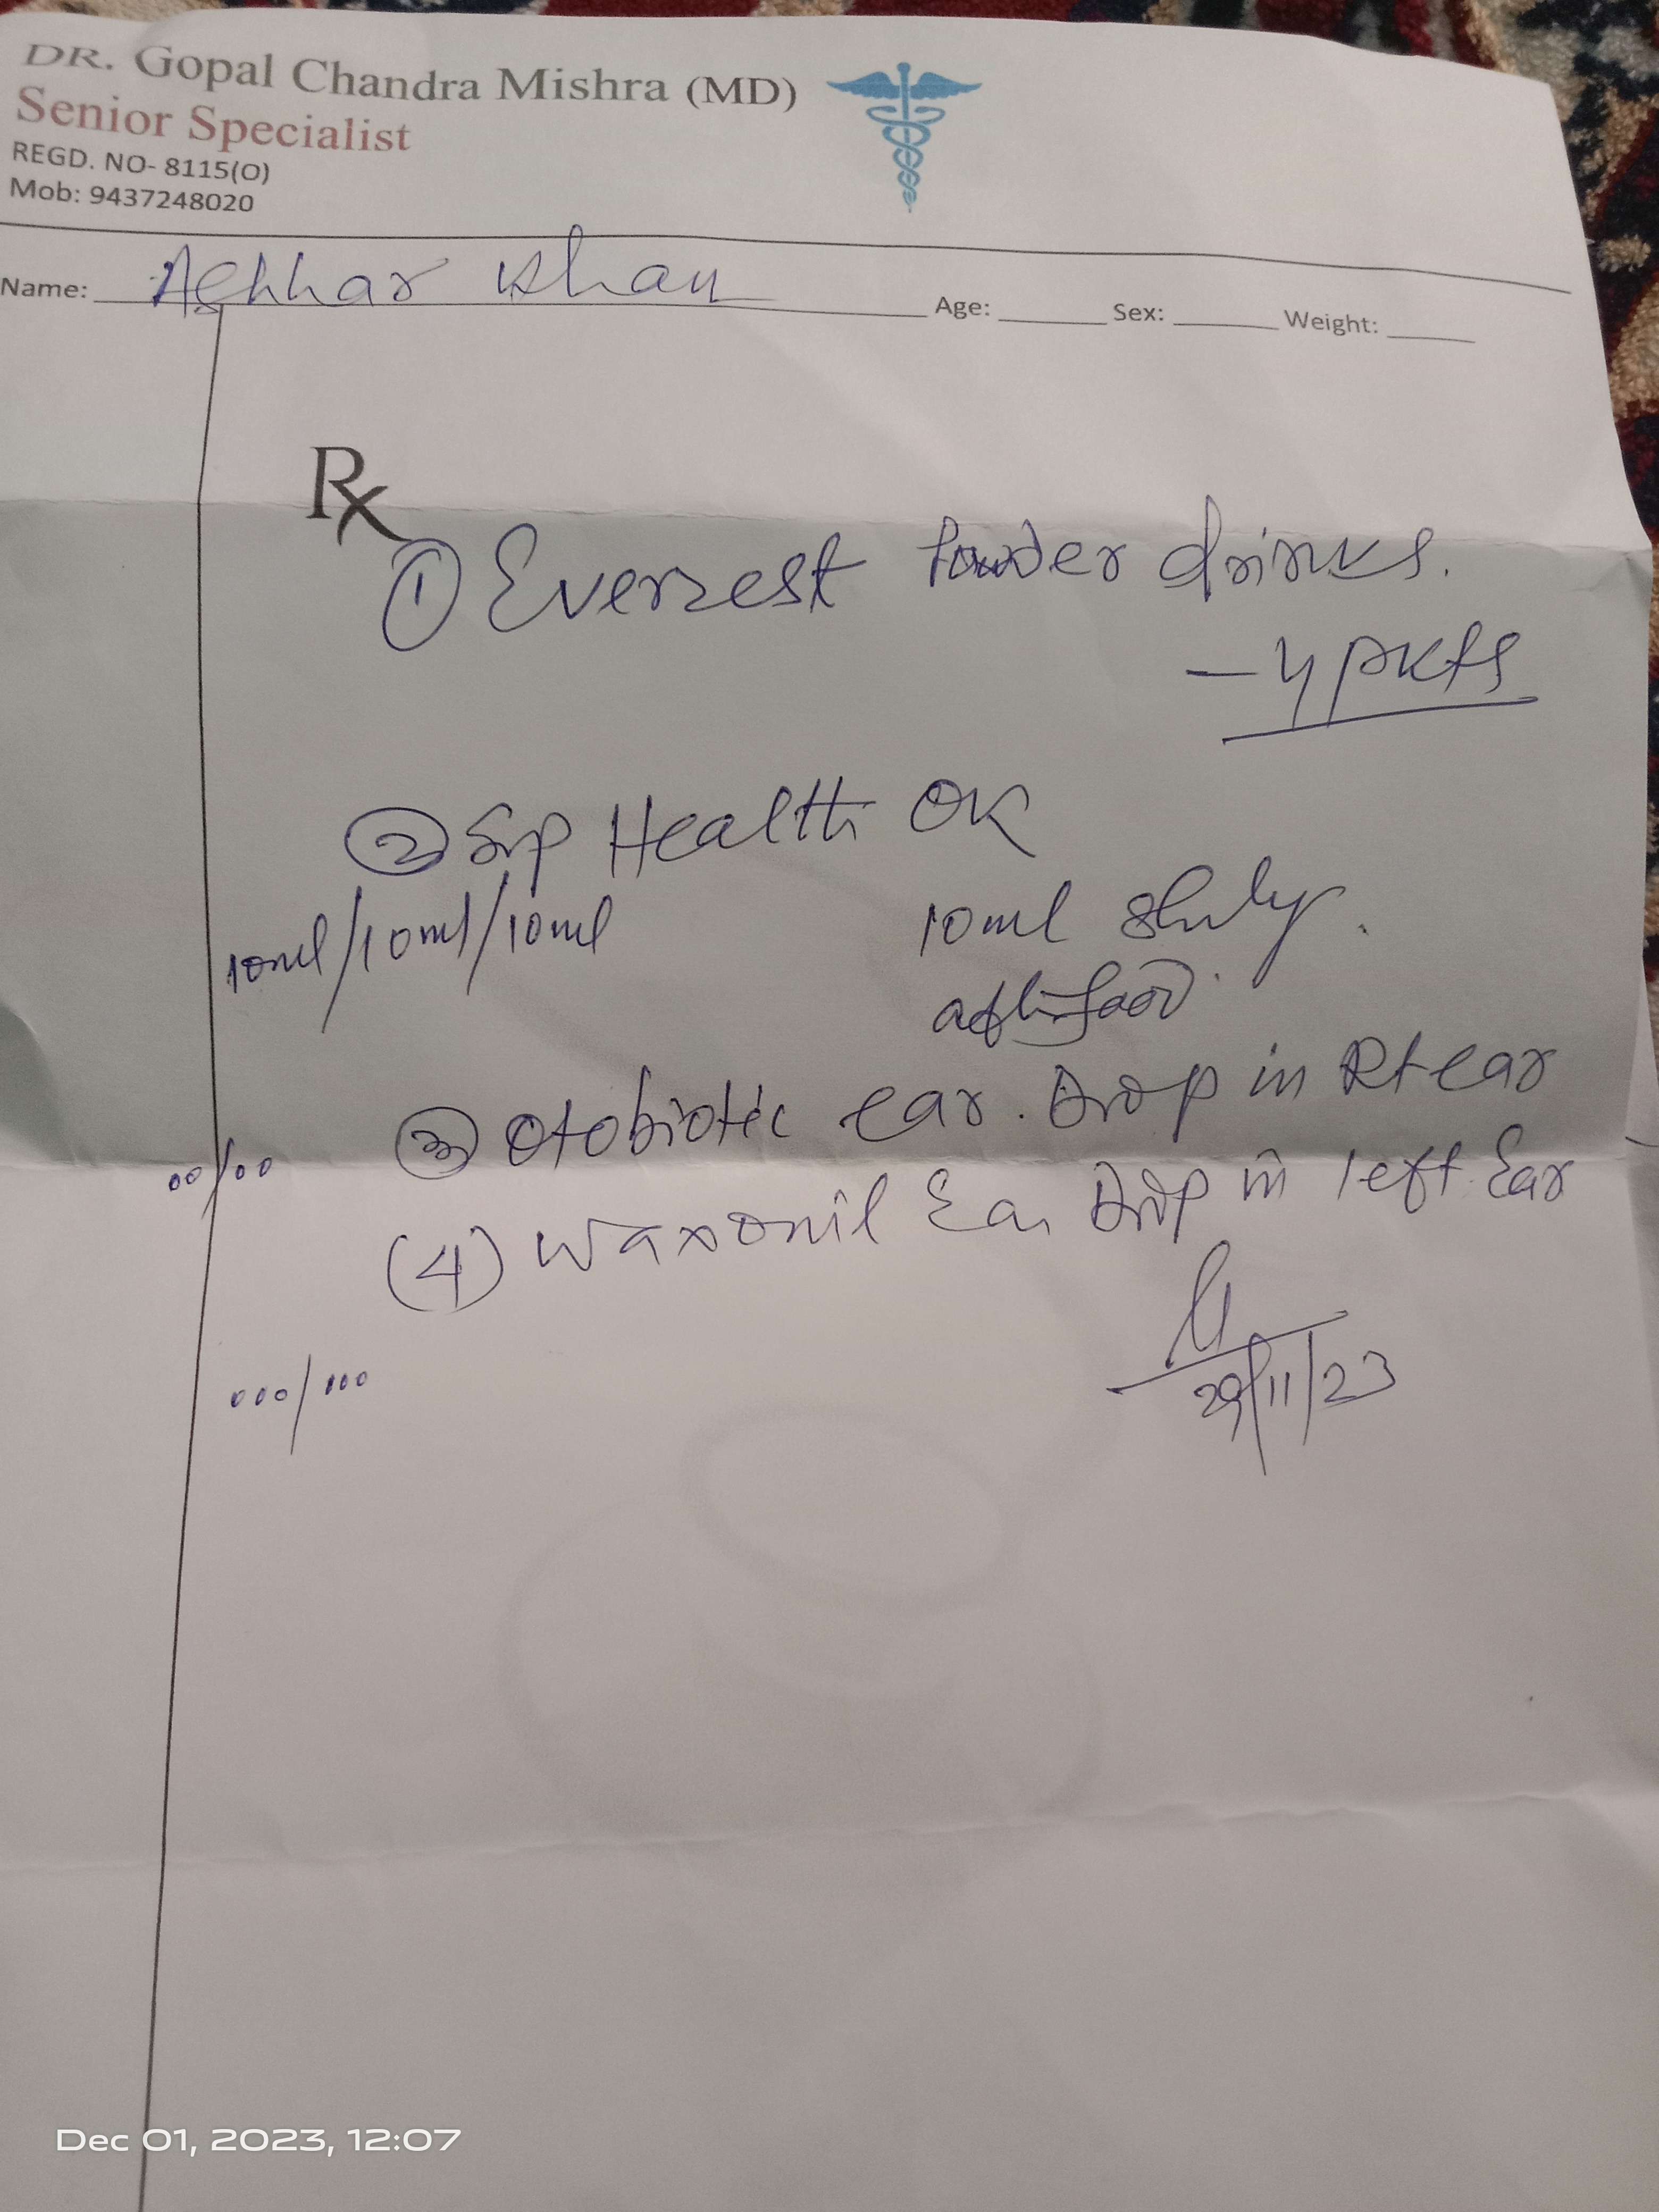 DR. Gopal Chandra Mishra (MD)
Senior Specialist
REGD. NO- 8115(O)
Mob: 9437248020
Name: Khan Age: Sex: Weight:
Rx
① Everest Powder drinks.
- 4 pkts
② Syp Health OK
10ml/10ml/10ml
10ml
after food
③ Otobiotic ear. Drop in Rt ear
00/00
(4) Waxonil Ear Drop in left Ear
29/11/23
000/000
Dec 01, 2023, 12:07